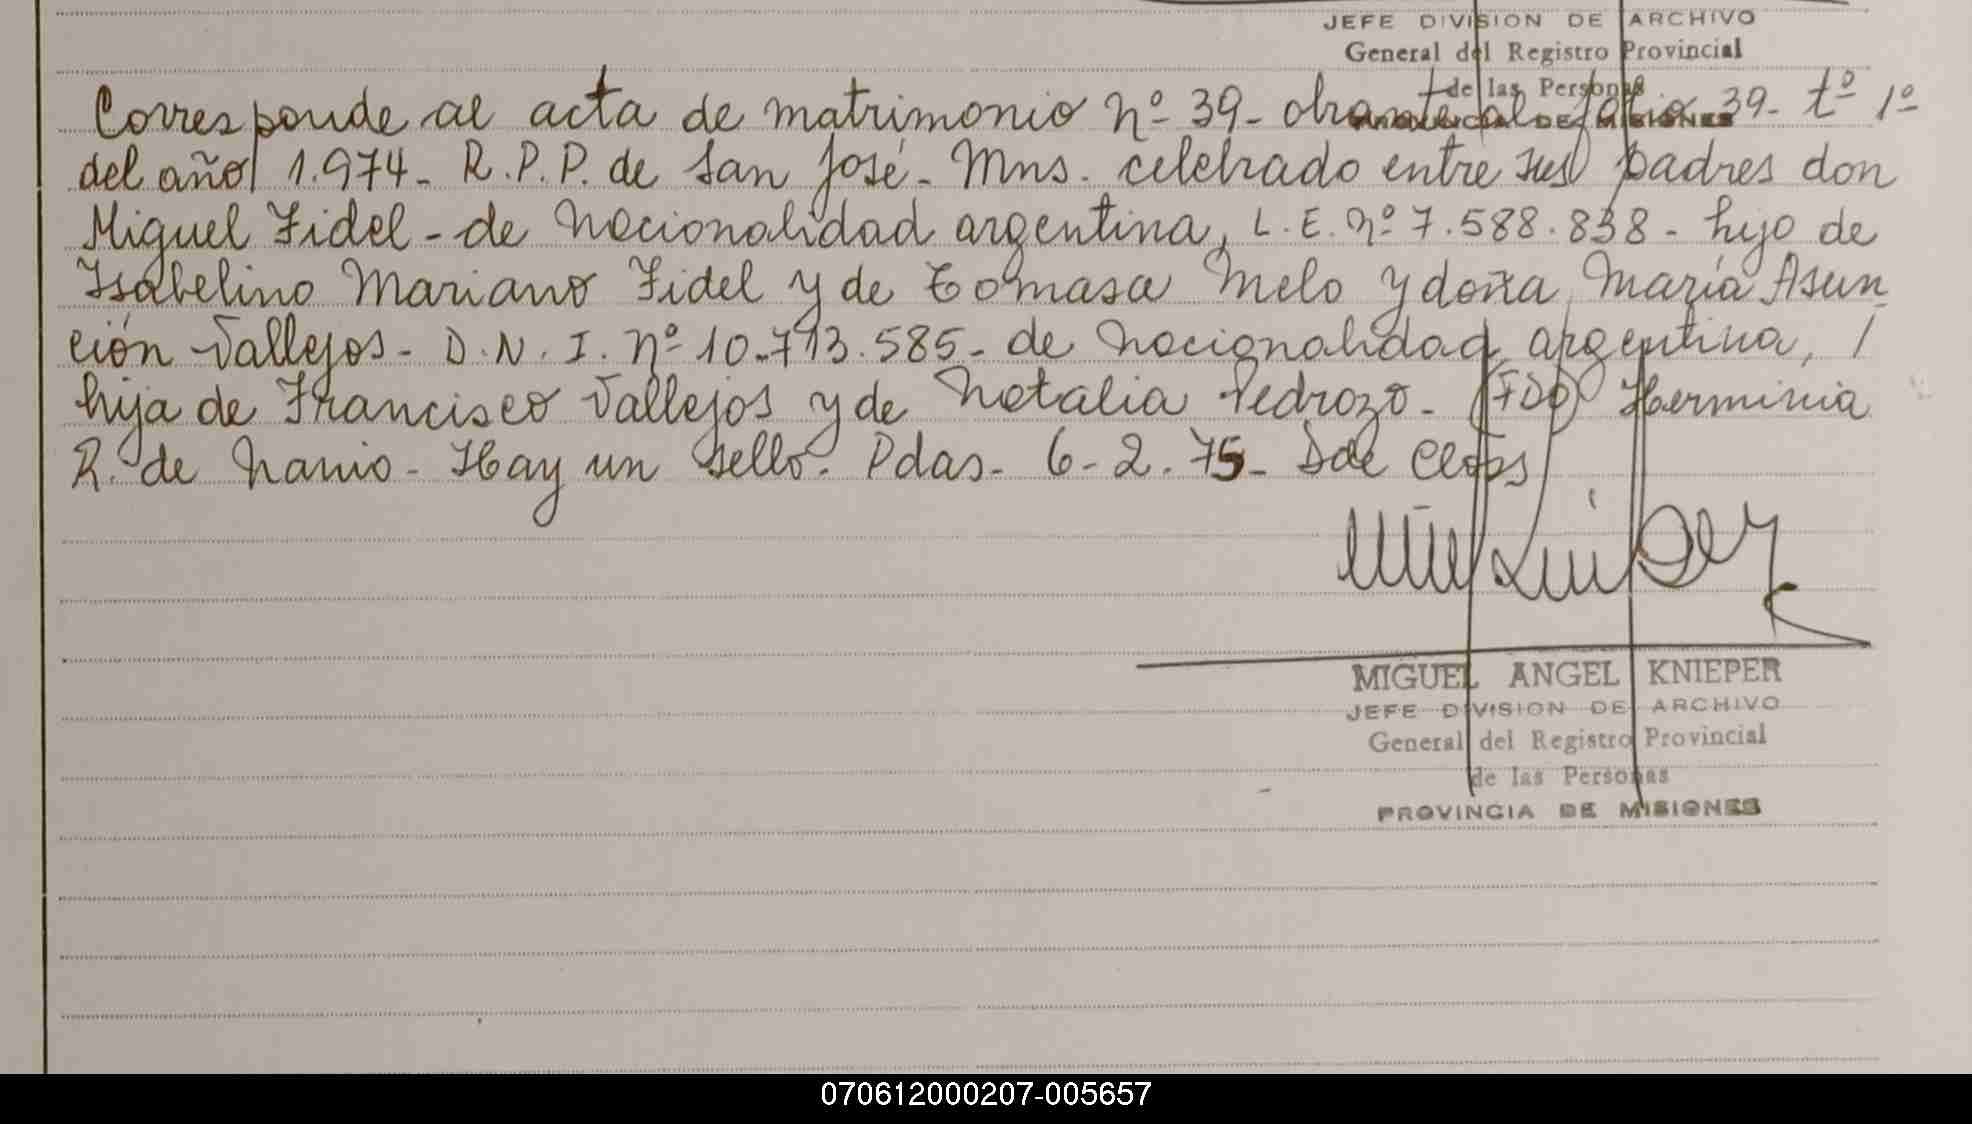 JEFE DIVISION DE ARCHIVO
General del Registro Provincial
de las Personas
PROVINCIA DE MISIONES
Corresponde al acta de matrimonio nº 39- obrante al folio 39- tº 1º
del año 1.974- R.P.P. de San José- Mns. celebrado entre sus padres don
Miguel Fidel - de nacionalidad argentina, L.E. nº 7.588.838 - hijo de
Isabelino Mariano Fidel y de Tomasa Melo y doña María Asun
ción Vallejos- D.N.I. nº 10.713.585- de nacionalidad argentina, /
hija de Francisco Vallejos y de Natalia Pedrozo- (FDO) Herminia
R. de Nanio- Hay un sello. Pdas- 6-2.75-
MIGUEL ANGEL KNIEPER
JEFE DIVISION DE ARCHIVO
General del Registro Provincial
de las Personas
PROVINCIA DE MISIONES
070612000207-005657